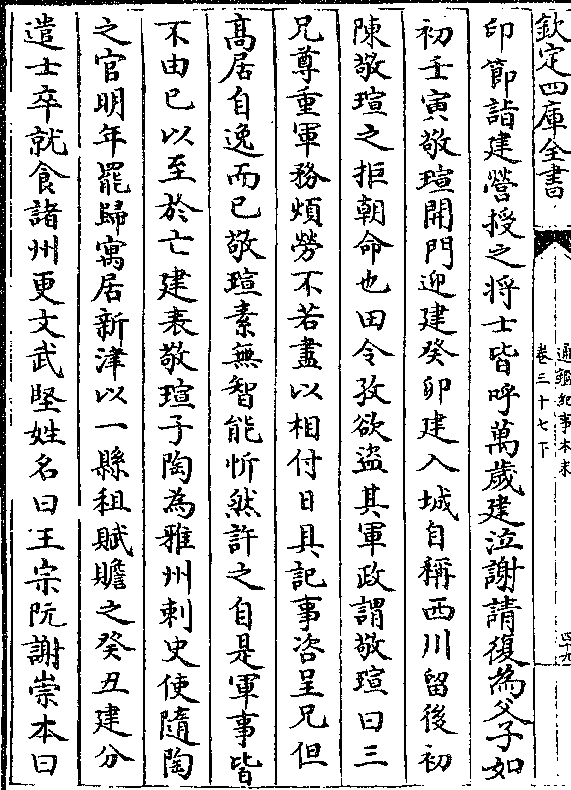 欽定四庫全書
通鑑紀事本末
卷三十七下
四十九
印節詣建營授之将士皆呼萬歲建泣謝請復為父子如
初壬寅敬瑄開門迎建癸卯建入城自稱西川留後初
陳敬瑄之拒朝命也田令孜欲盜其軍政謂敬瑄曰三
兄尊重軍務煩勞不若盡以相付日具記事咨呈兄但
髙居自逸而已敬瑄素無智能忻然許之自是軍事皆
不由已以至於亡建表敬瑄子陶為雅州刺史使隨陶
之官明年罷歸寓居新津以一縣租賦贍之癸丑建分
遣士卒就食諸州更文武堅姓名曰王宗阮謝崇本曰